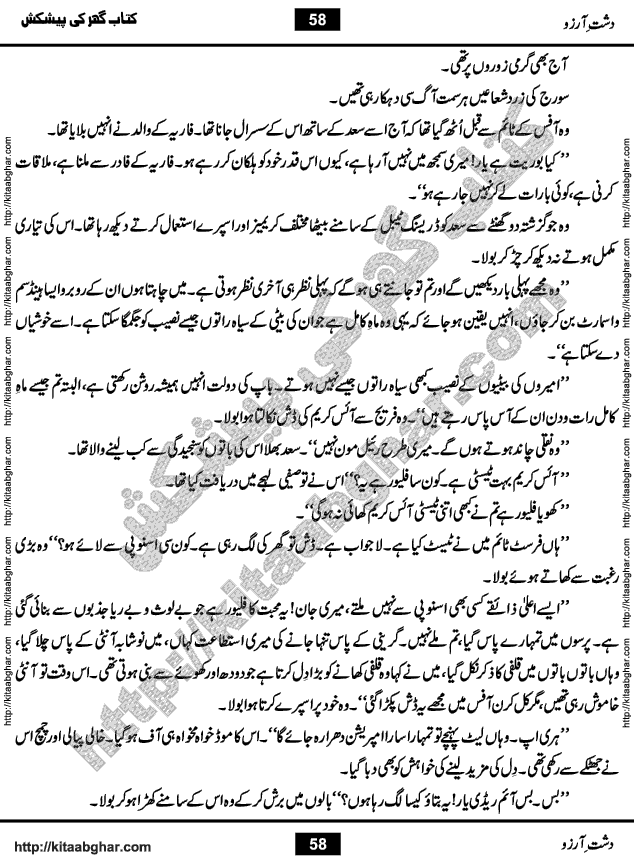 کتاب گھر کی پیشکش
58
دشتِ آرزو
آج بھی گرمی زوروں پر تھی۔
سورج کی زرد شعاعیں ہر سمت آگ سی دہکا رہی تھیں۔
وہ آفس کے ٹائم سے قبل اُٹھ گیا تھا کہ آج اسے سعد کے ساتھ اس کے سسرال جانا تھا۔ فاریہ کے والد نے انہیں بلایا تھا۔
’’کیا بوریت ہے یار! میری سمجھ میں نہیں آ رہا ہے، کیوں اس قدر خود کو ہلکان کر رہے ہو۔ فاریہ کے فادر سے ملنا ہے، ملاقات
کرنی ہے، کوئی بارات لے کر نہیں جا رہے ہو‘‘۔
وہ جو گزشتہ دو گھنٹے سے سعد کو ڈریسنگ ٹیبل کے سامنے بیٹھا مختلف کریمیز اور اسپرے استعمال کرتے دیکھ رہا تھا۔ اس کی تیاری
مکمل ہوتے نہ دیکھ کر چڑ کر بولا۔
’’وہ مجھے پہلی بار دیکھیں گے اور تم تو جانتے ہی ہو گے کہ پہلی نظر ہی آخری نظر ہوتی ہے۔ میں چاہتا ہوں ان کے روبرو ایسا ہینڈسم
و اسمارٹ بن کر جاؤں، انہیں یقین ہو جائے کہ یہی وہ ماہِ کامل ہے جو ان کی بیٹی کے سیاہ راتوں جیسے نصیب کو جگمگا سکتا ہے۔ اسے خوشیاں
دے سکتا ہے‘‘۔
’’امیروں کی بیٹیوں کے نصیب کبھی سیاہ راتوں جیسے نہیں ہوتے۔ باپ کی دولت انہیں ہمیشہ روشن رکھتی ہے، البتہ تم جیسے ماہِ
کامل رات و دن ان کے آس پاس رہتے ہیں‘‘۔ وہ فریج سے آئس کریم کی ڈش نکالتا ہوا بولا۔
’’وہ نقلی چاند ہوتے ہوں گے۔ میری طرح رئیل مون نہیں‘‘۔ سعد بھلا اس کی باتوں کو سنجیدگی سے کب لینے والا تھا۔
’’آئس کریم بہت ٹیسٹی ہے۔ کون سا فلیور ہے یہ؟‘‘ اس نے توصیفی لہجے میں دریافت کیا تھا۔
’’کھویا فلیور ہے تم نے کبھی اتنی ٹیسٹی آئس کریم کھائی نہ ہوگی‘‘۔
’’ہاں فرسٹ ٹائم میں نے ٹیسٹ کیا ہے۔ لاجواب ہے۔ ڈش تو گھر کی لگ رہی ہے۔ کون سی اسنوپی سے لائے ہو؟‘‘ وہ بڑی
رغبت سے کھاتے ہوئے بولا۔
’’ایسے اعلیٰ ذائقے کسی بھی اسنوپی سے نہیں ملتے، میری جان! یہ محبت کا فلیور ہے جو بے لوث و بے ریا جذبوں سے بنائی گئی
ہے۔ پرسوں میں تمہارے پاس گیا، تم ملے نہیں۔ گرینی کے پاس تنہا جانے کی میری استطاعت کہاں، میں نوشابہ آنٹی کے پاس چلا گیا،
وہاں باتوں باتوں میں قلفی کا ذکر نکل گیا، میں نے کہا وہ قلفی کھانے کو بڑا دل کرتا ہے جو دودھ اور کھوئے سے بنی ہوتی تھی۔ اس وقت تو آنٹی
خاموش رہی تھیں، مگر کل کرن آفس میں مجھے یہ ڈش پکڑا گئی‘‘۔ وہ خود پر اسپرے کرتا ہوا بولا۔
’’ہری اپ۔ وہاں لیٹ پہنچے تو تمہارا سارا امپریشن دھرا رہ جائے گا‘‘۔ اس کا موڈ خواہ مخواہ ہی آف ہو گیا۔ خالی پیالی اور چمچ اس
نے جھٹکے سے رکھی تھی۔ دِل کی مزید لینے کی خواہش کو بھی دبا گیا۔
’’بس۔ بس آئم ریڈی یار! یہ بتاؤ کیسا لگ رہا ہوں؟‘‘ بالوں میں برش کر کے وہ اس کے سامنے کھڑا ہو کر بولا۔
http://kitaabghar.com
58
دشتِ آرزو
http://kitaabghar.com
http://kitaabghar.com
http://kitaabghar.com
http://kitaabghar.com
http://kitaabghar.com
http://kitaabghar.com
http://kitaabghar.com
http://kitaabghar.com
http://kitaabghar.com
http://kitaabghar.com
http://kitaabghar.com
http://kitaabghar.com
کتاب گھر کی پیشکش
http://kitaabghar.com